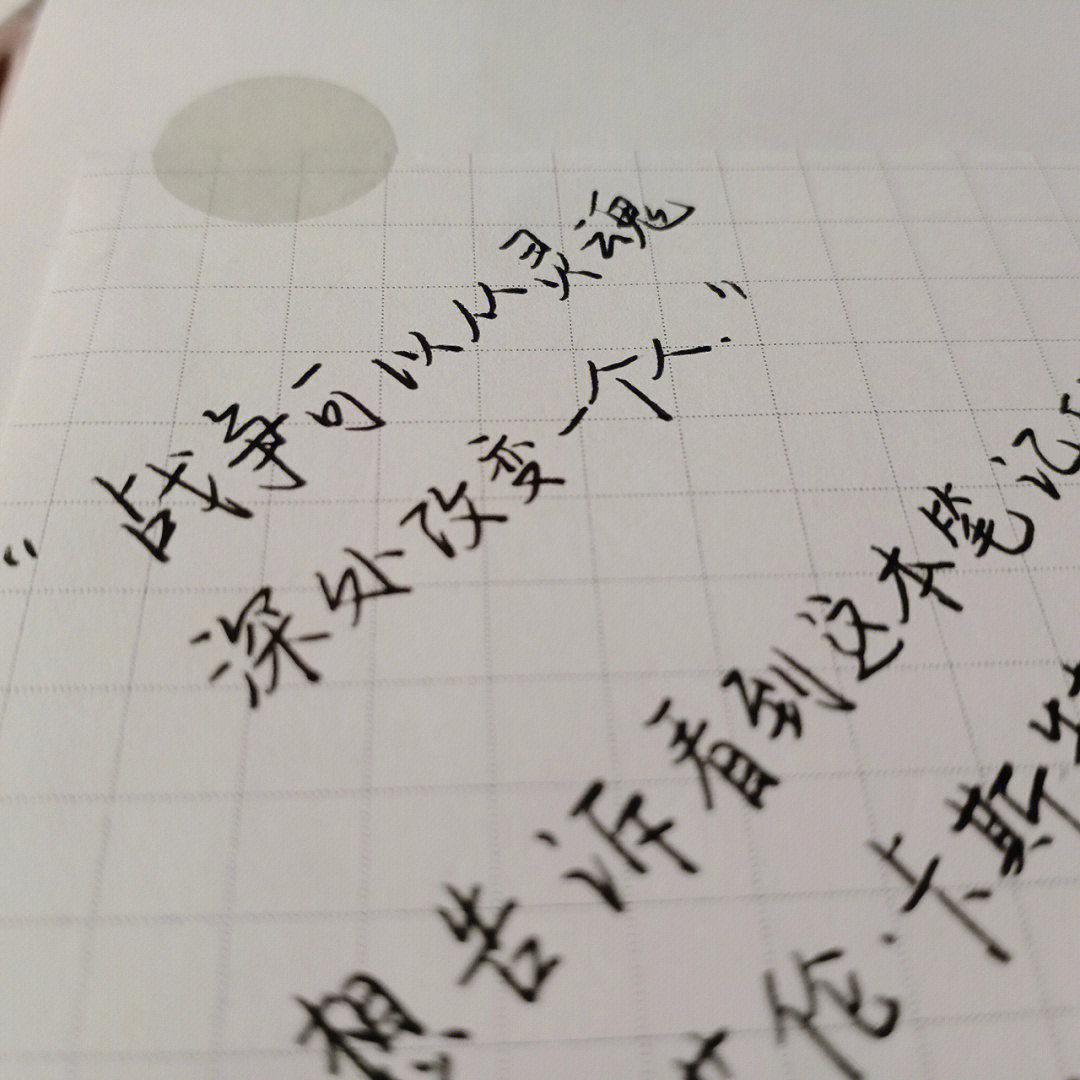 “战争可以从灵魂
深处改变一个人.”
想告诉看到这本笔记
伦·卡斯特